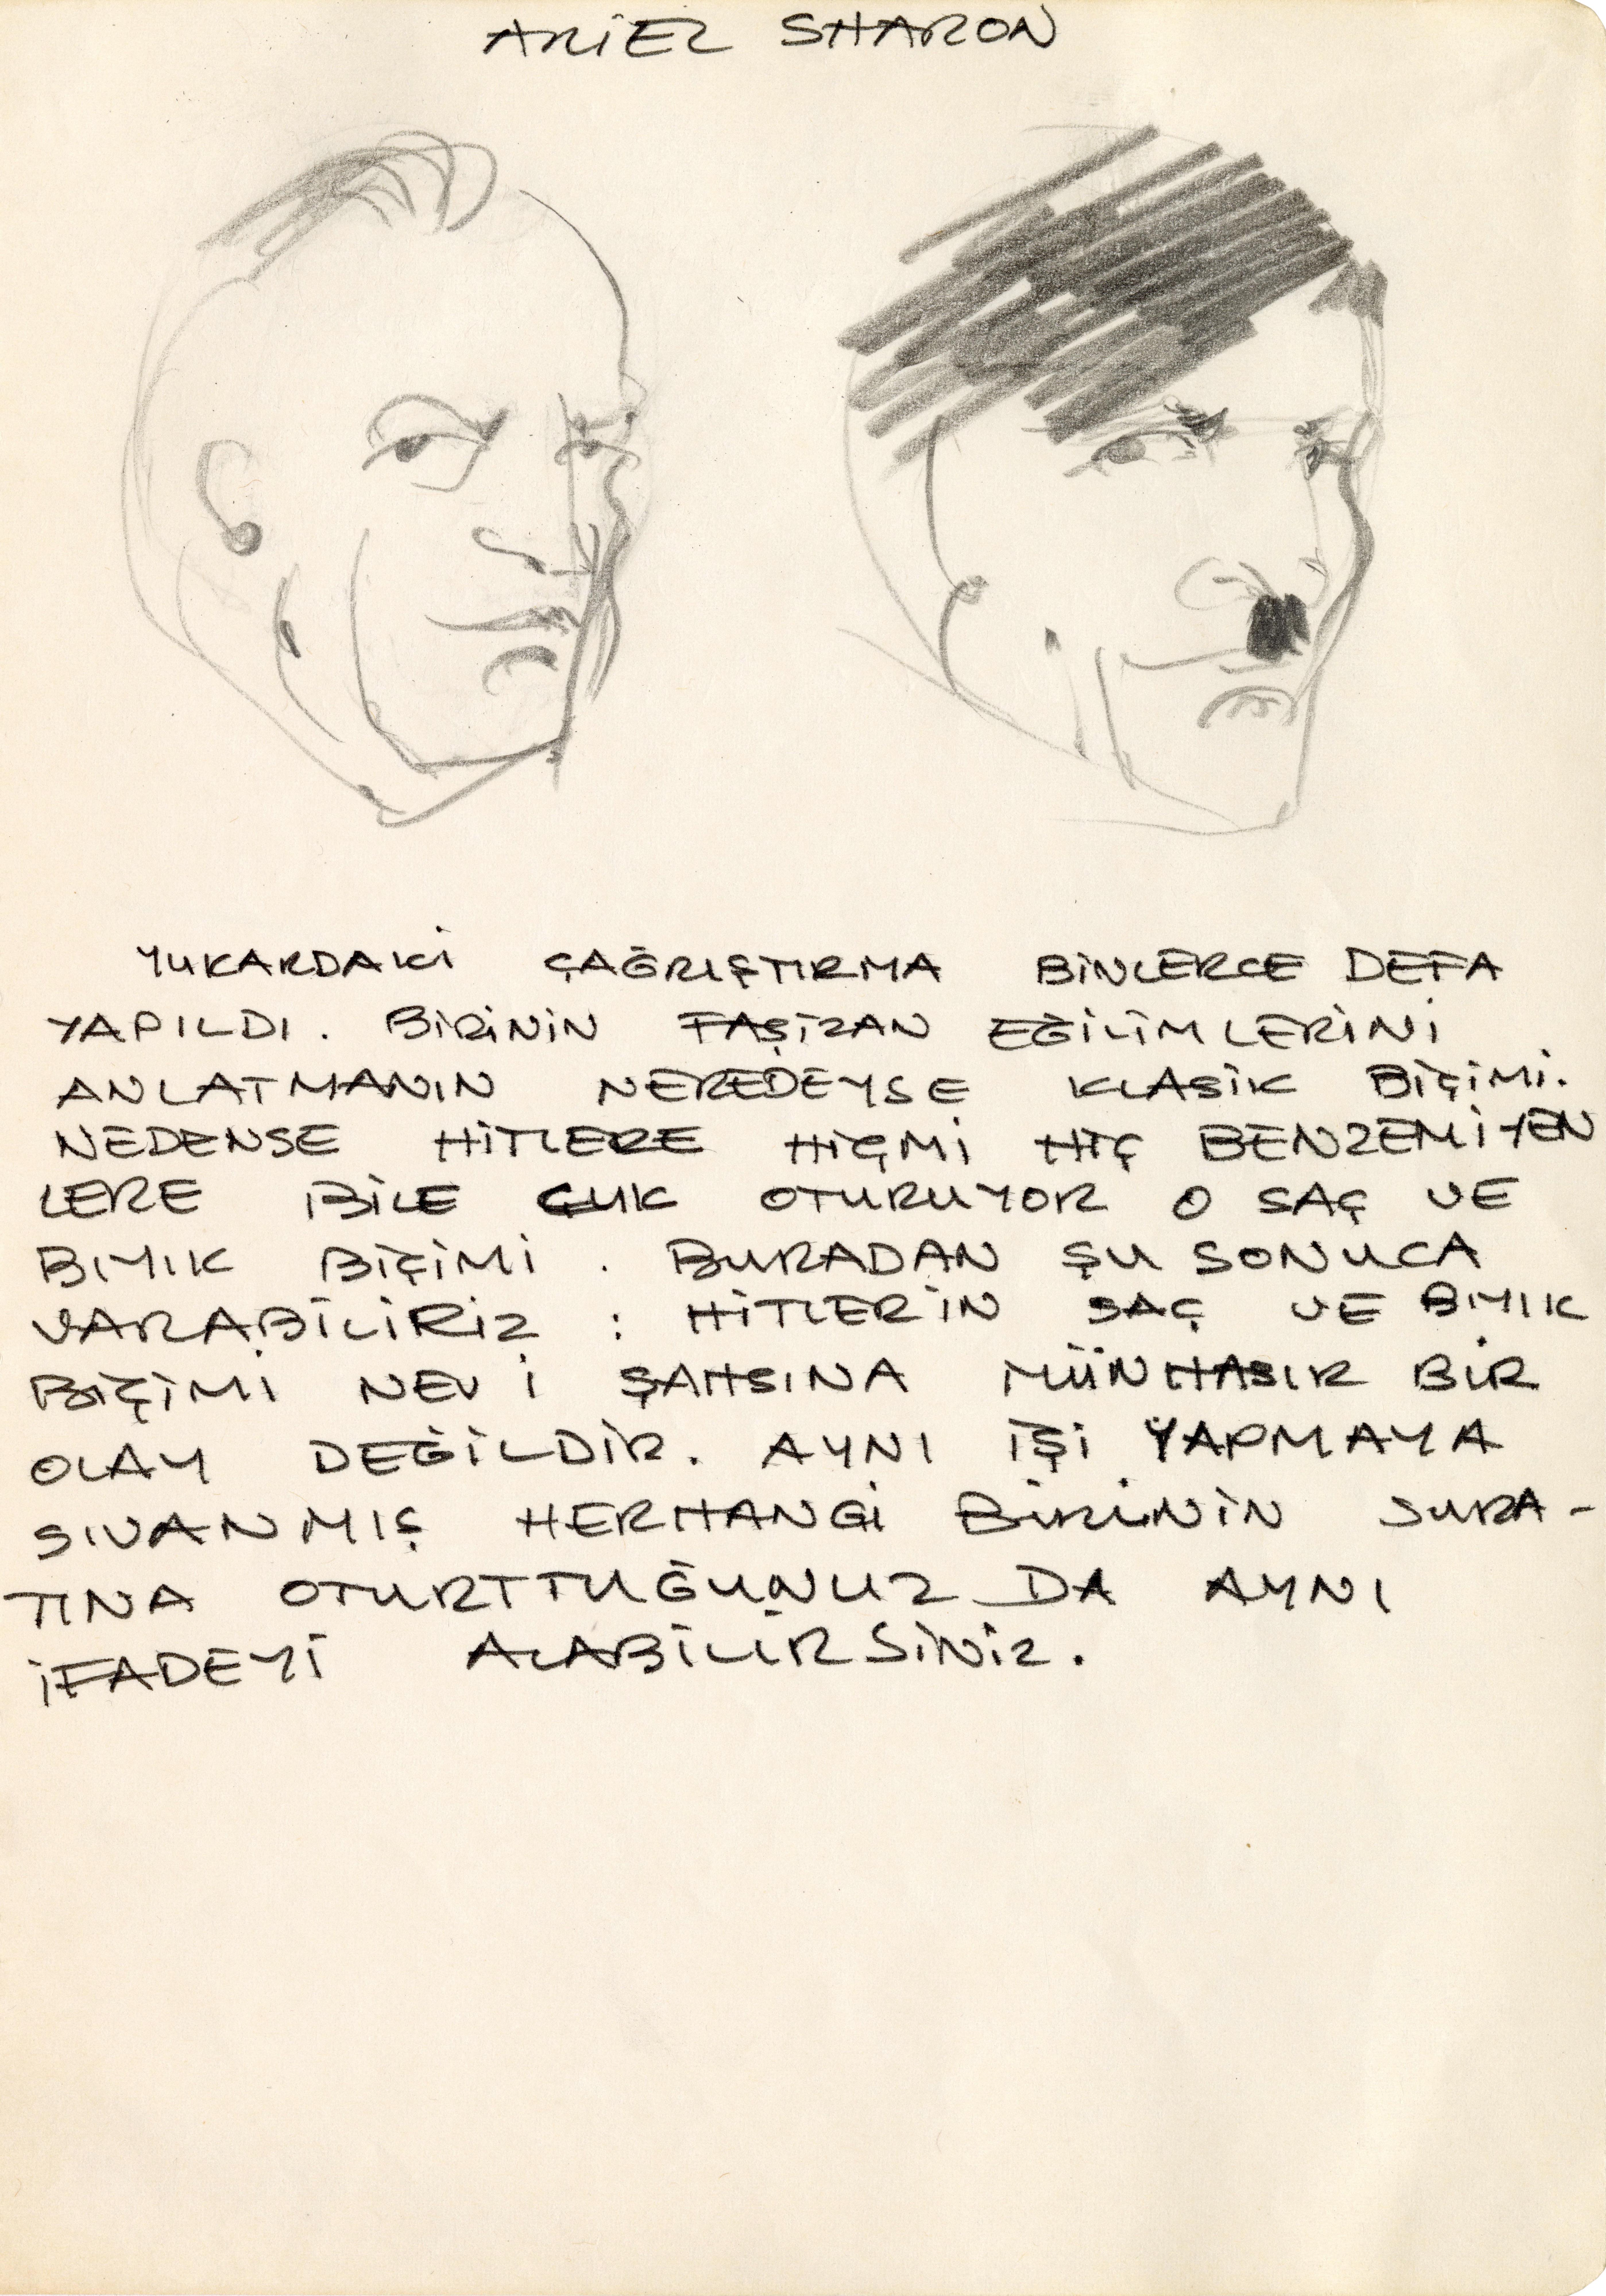 ARİEL SHARON
YUKARDAKİ ÇAĞRIŞTIRMA BİNLERCE DEFA
YAPILDI. BİRİNİN FAŞİZAN EĞİLİMLERİNİ
ANLATMANIN NEREDEYSE KLASİK BİÇİMİ.
NEDENSE HİTLERE HİÇMİ HİÇ BENZEMİYEN
LERE BİLE CUK OTURUYOR O SAÇ VE
BIYIK BİÇİMİ. BURADAN ŞU SONUCA
VARABİLİRİZ : HİTLER'İN SAÇ VE BIYIK
BİÇİMİ NEV İ ŞAHSINA MÜNHASIR BİR
OLAY DEĞİLDİR. AYNI İŞİ YAPMAYA
SIVANMIŞ HERHANGİ BİRİNİN SURA-
TINA OTURTTUĞUNUZ DA AYNI
İFADEYİ ALABİLİRSİNİZ.